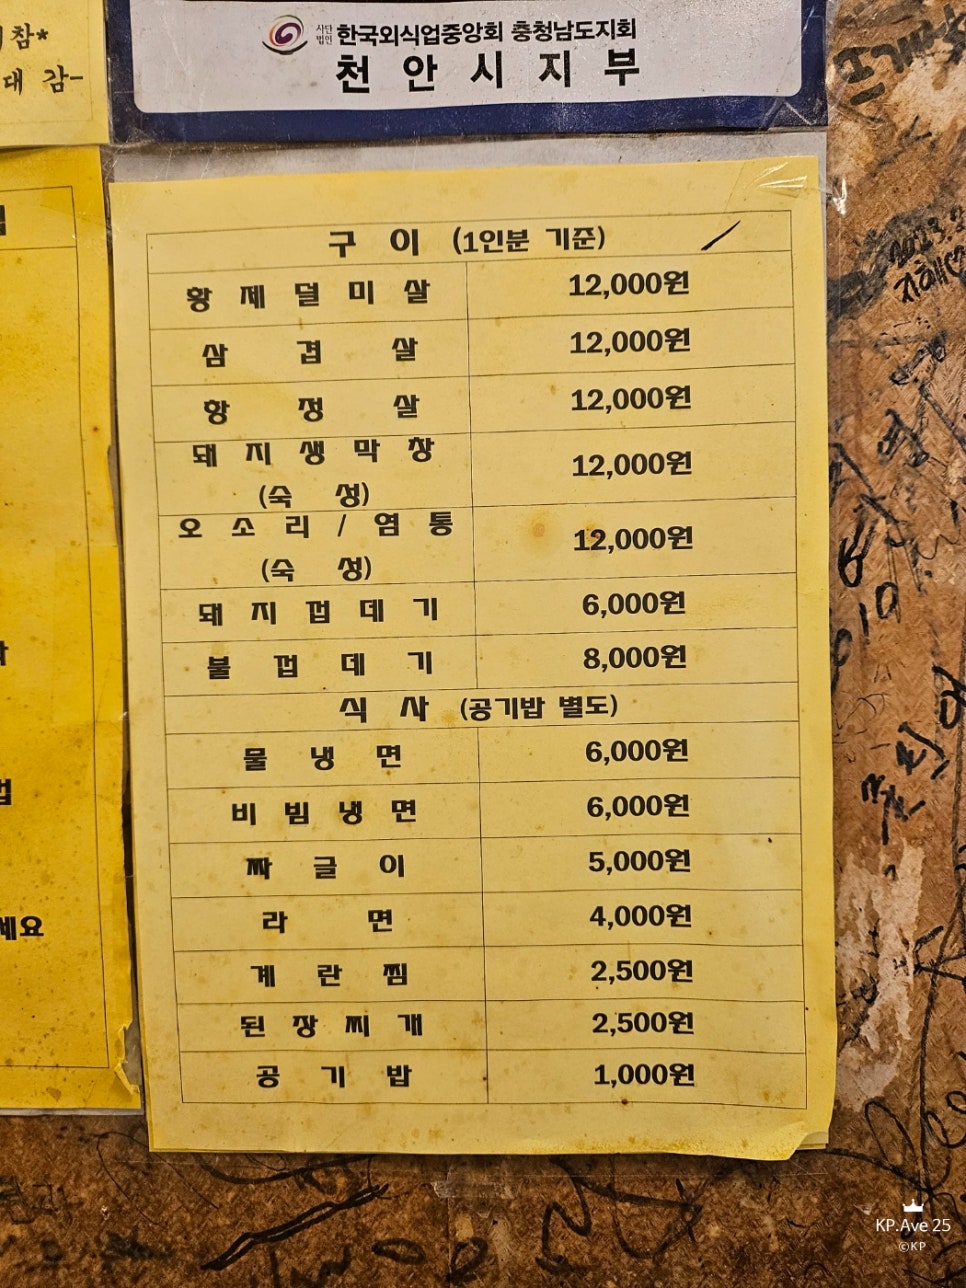 사단
법인
한국외식업중앙회 충청남도지회
천 안 시 지 부
참*
대 감-
구 이 (1인분 기준)
황 제 덜 미 살 12,000원
삼 겹 살 12,000원
항 정 살 12,000원
돼 지 생 막 창
(숙 성) 12,000원
오 소 리 / 염 통
(숙 성) 12,000원
돼 지 껍 데 기 6,000원
불 껍 데 기 8,000원
식 사 (공기밥 별도)
물 냉 면 6,000원
비 빔 냉 면 6,000원
짜 글 이 5,000원
라 면 4,000원
계 란 찜 2,500원
된 장 찌 개 2,500원
공 기 밥 1,000원
세요
지혜
KP.Ave 25
©KP